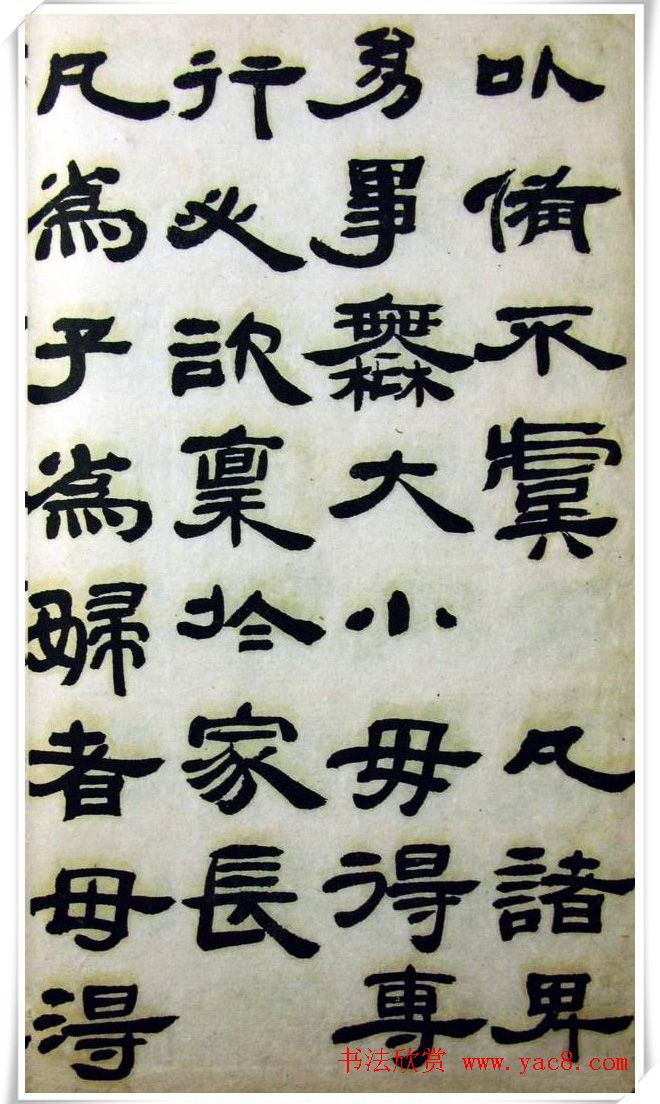 以備不虞　凡諸卑
幼事無大小毋得專
行必咨稟於家長
凡為子為婦者毋得
书法欣赏 www.yac8.com